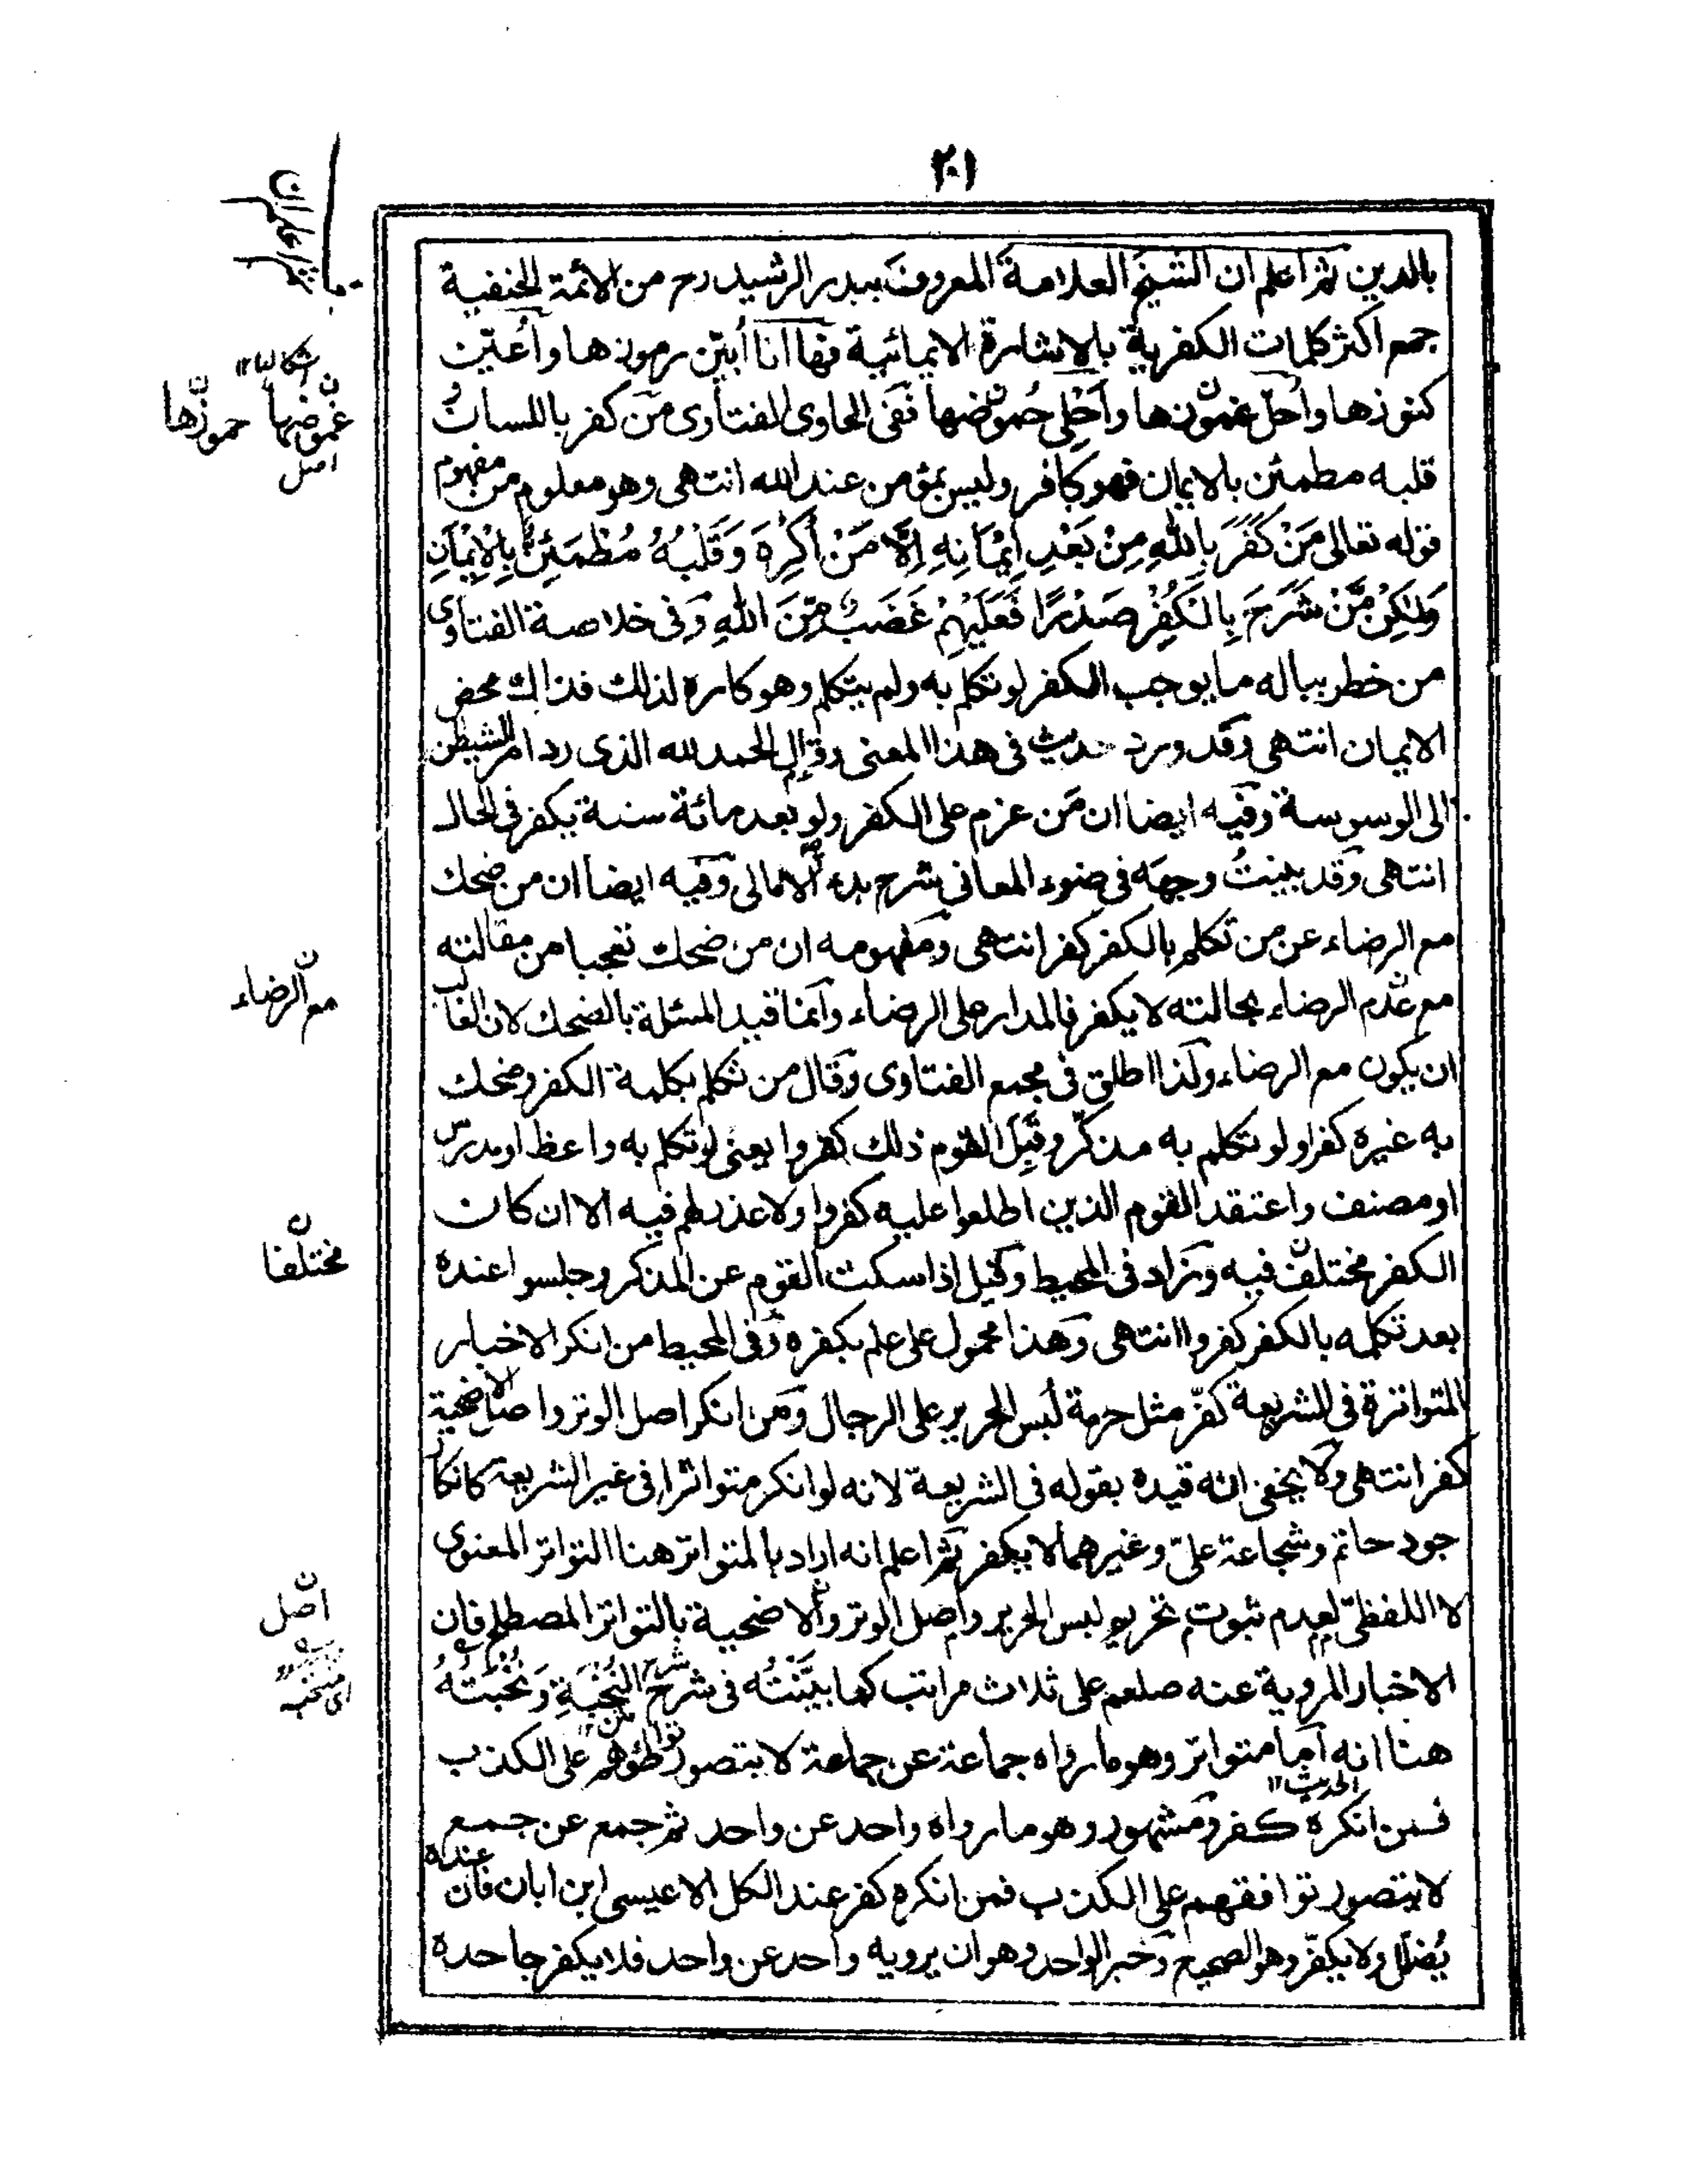 ٢٠١
بالدين ثم اعلم ان الشيخ العلامة المعروف ببدر الرشيد رح من الائمة الحنفية
جمع اكثر كلمات الكفرية بالاشارة الايمائية فها انا أبيّن رموزها وأعيّن
كنوزها وأحلّ غموزها وأحلى حموضها ففى الحاوى الفتاوى من كفر باللسان
قلبه مطمئن بالايمان فهو كافر وليس بمؤمن عند الله انتهى وهو معلوم من مفهوم
قوله تعالى مَنْ كَفَرَ بِاللّٰهِ مِنْ بَعْدِ اِيْمَانِهٖ اِلَّا مَنْ اُكْرِهَ وَقَلْبُهٗ مُطْمَئِنٌّ بِالْاِيْمَانِ
وَلٰكِنْ مَّنْ شَرَحَ بِالْكُفْرِ صَدْرًا فَعَلَيْهِمْ غَضَبٌ مِّنَ اللّٰهِ وفى خلاصة الفتاوى
من خطر بباله ما يوجب الكفر لو تكلم به ولم يتكلم وهو كاره لذلك فذاك محض
الايمان انتهى وقد ورد حديث فى هذا المعنى وقال الحمد لله الذى رد امر الشيطن
الى الوسوسة وفيه ايضا ان من عزم على الكفر ولو بعد مائة سنة يكفر فى الحال
انتهى وقد بينتُ وجهه فى ضوء المعانى شرح بدء الامالى وفيه ايضا ان من ضحك
مع الرضاء عن من تكلم بالكفر كفر انتهى ومفهومه ان من ضحك تعجبا من مقالته
مع عدم الرضاء بحالته لا يكفر فالمدار على الرضاء وانما قيد المسئلة بالضحك لان الغالب
ان يكون مع الرضاء ولذا اطلق فى مجمع الفتاوى وقال من تكلم بكلمة الكفر وضحك
به غيره كفر او لو تكلم به مذكّر وقَبِلَ القوم ذلك كفروا يعنى لو تكلم به واعظ او مدرس
او مصنف واعتقد القوم الذين اطلعوا عليه كفروا ولا عذر لهم فيه الا ان كان
الكفر مختلف فيه وزاد فى المحيط وقيل اذا سكت القوم عن المذكر وجلسوا عنده
بعد تكلمه بالكفر كفروا انتهى وهذا محمول على علم بكفره وفى المحيط من انكر الاخبار
المتواترة فى الشريعة كفّر مثل حرمة لُبس الحرير على الرجال ومن انكر اصل الوتر واصل الاضحية
كفر انتهى ولا يخفى انه قيده بقوله فى الشريعة لانه لو انكر متواترا فى غير الشريعة كانكار
جود حاتم وشجاعة علىّ وغيرهما لا يكفر ثم اعلم انه اراد بالمتواتر هنا التواتر المعنوى
لا اللفظىّ لعدم ثبوت تحريم لبس الحرير واصل الوتر والاضحية بالتواتر المصطلح فان
الاخبار المروية عنه صلعم على ثلاث مراتب كما بيّنتُه فى شرح شرح النُخبةِ ونُخبتُهُ
هنا انه اما متواتر وهو ما رواه جماعة عن جماعة لا يتصور تواطؤهم على الكذب
الحديث ١٢
فمن انكره كفر ومشهور وهو ما رواه واحد عن واحد ثم جمع عن جمع
لا يتصور توافقهم على الكذب فمن انكره كفر عند الكل الا عيسى ابن ابان فان عنده
يُضلّل ولا يكفّر وهو الصحيح وخبر الواحد وهو ان يرويه واحد عن واحد فلا يكفر جاحده
غموضها حموزها
اصل
مع الرضاء
مختلفا
اصل